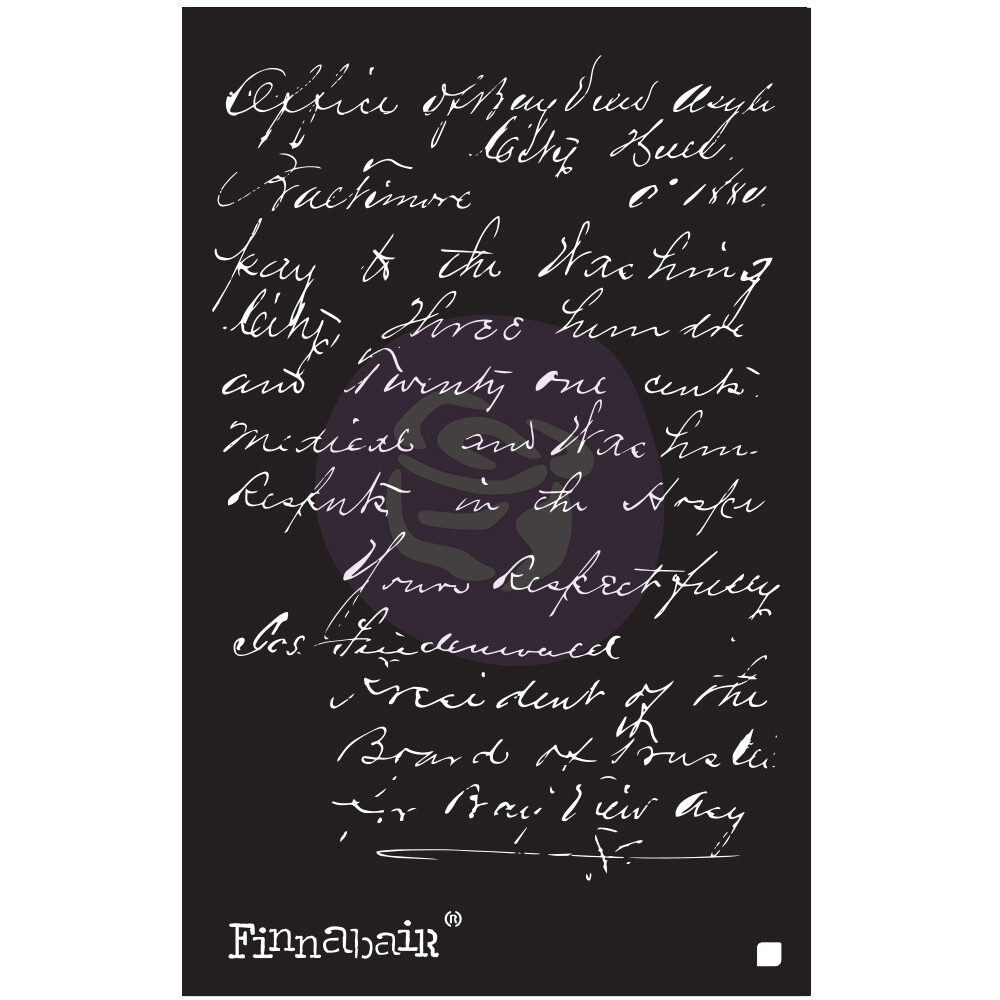 Office of Bay View Asyl
City
Baltimore 1880.
pay to the Washing
City, Three hun dre
and Twenty one cents.
Medical and Wash
in the Hospi
Yours Respectfully
President of the
Board of Trustee
for Bay View Asy
Finnabair®